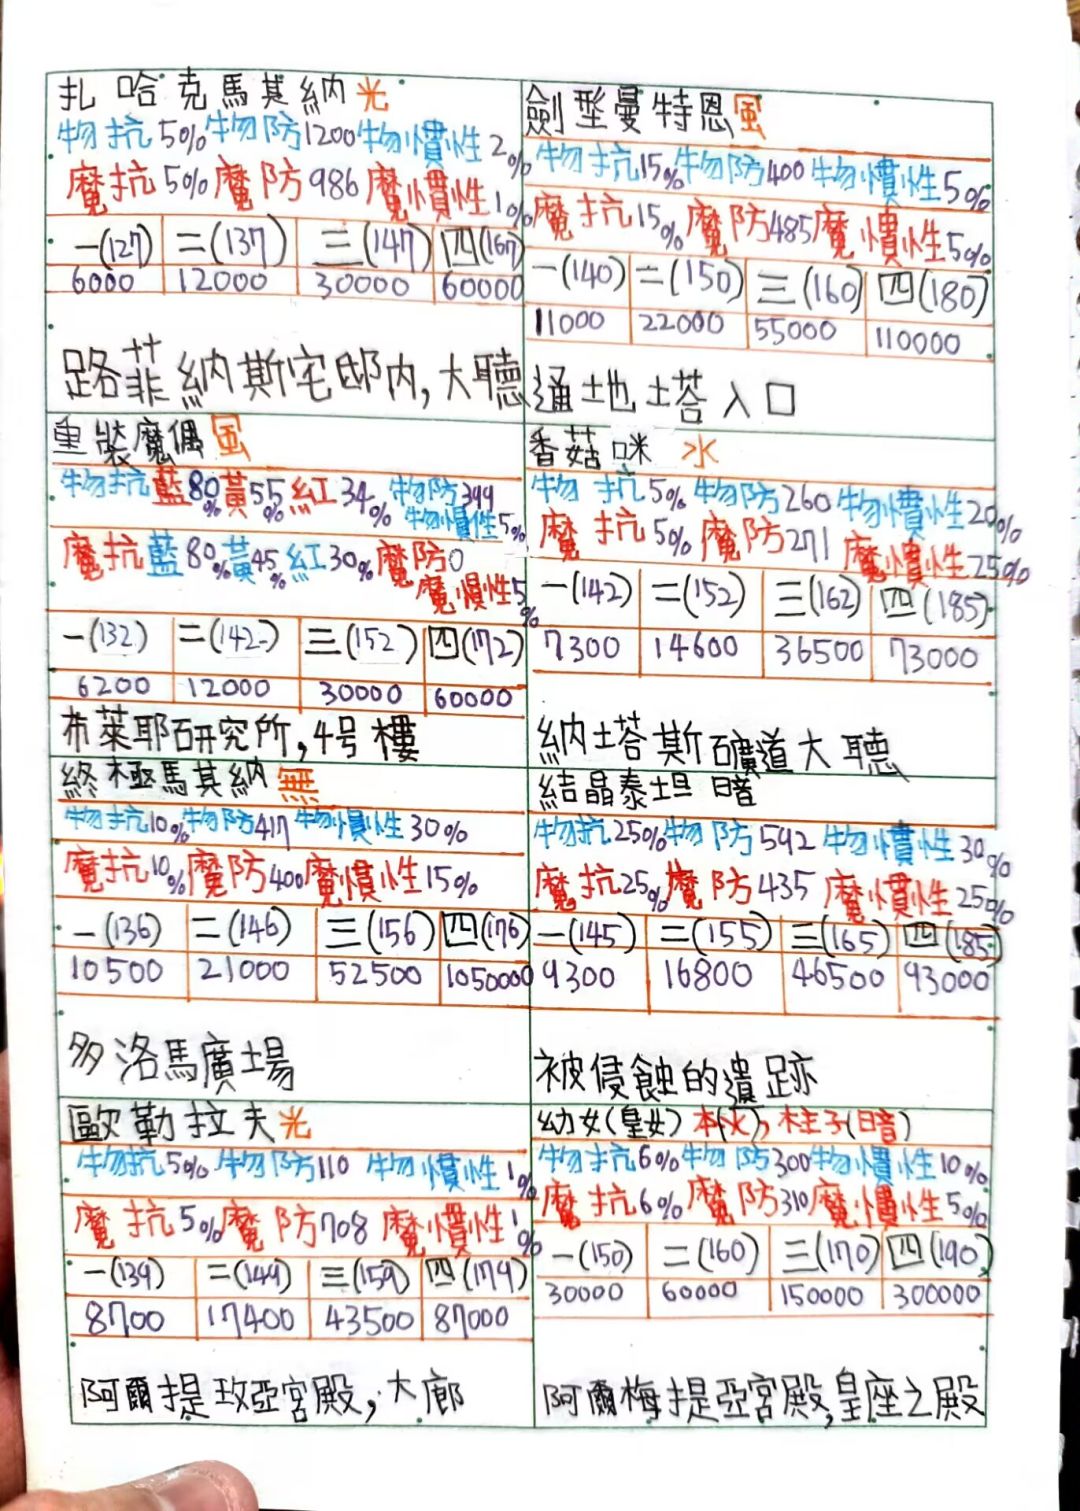 扎哈克馬其納光
物抗5%物防1200物慣性2%
魔抗5%魔防986魔慣性1%
一(127) 二(137) 三(147) 四(167)
6000 12000 30000 60000
路菲納斯宅邸內,大聽
重裝魔偶風
物抗藍80%黃55%紅34%物防399
物慣性5%
魔抗藍80%黃45%紅30%魔防0
魔慣性5%
一(132) 二(142) 三(152) 四(172)
6200 12000 30000 60000
布萊耶研究所,4号樓
終極馬其納無
物抗10%物防417物慣性30%
魔抗10%魔防400魔慣性15%
一(136) 二(146) 三(156) 四(176)
10500 21000 52500 1050000
多洛馬廣場
歐勒拉夫光
物抗5%物防110物慣性1%
魔抗5%魔防708魔慣性1%
一(139) 二(149) 三(159) 四(179)
8700 17400 43500 87000
阿爾提玫亞宮殿,大廊
劍型曼特恩風
物抗15%物防400物慣性5%
魔抗15%魔防485魔慣性5%
一(140) 二(150) 三(160) 四(180)
11000 22000 55000 110000
通地塔入口
香菇咪 水
物抗5%物防260物慣性20%
魔抗5%魔防271魔慣性25%
一(142) 二(152) 三(162) 四(185)
7300 14600 36500 73000
納塔斯礦道大聽
結晶泰坦 暗
物抗250%物防592物慣性30%
魔抗25%魔防435魔慣性25%
一(145) 二(155) 三(165) 四(185)
9300 16800 46500 93000
被侵蝕的遺跡
幼女(皇女) 本(火),柱子(暗)
物抗6%物防300物慣性10%
魔抗6%魔防310魔慣性5%
一(150) 二(160) 三(170) 四(190)
30000 60000 150000 300000
阿爾梅提亞宮殿,皇座之殿